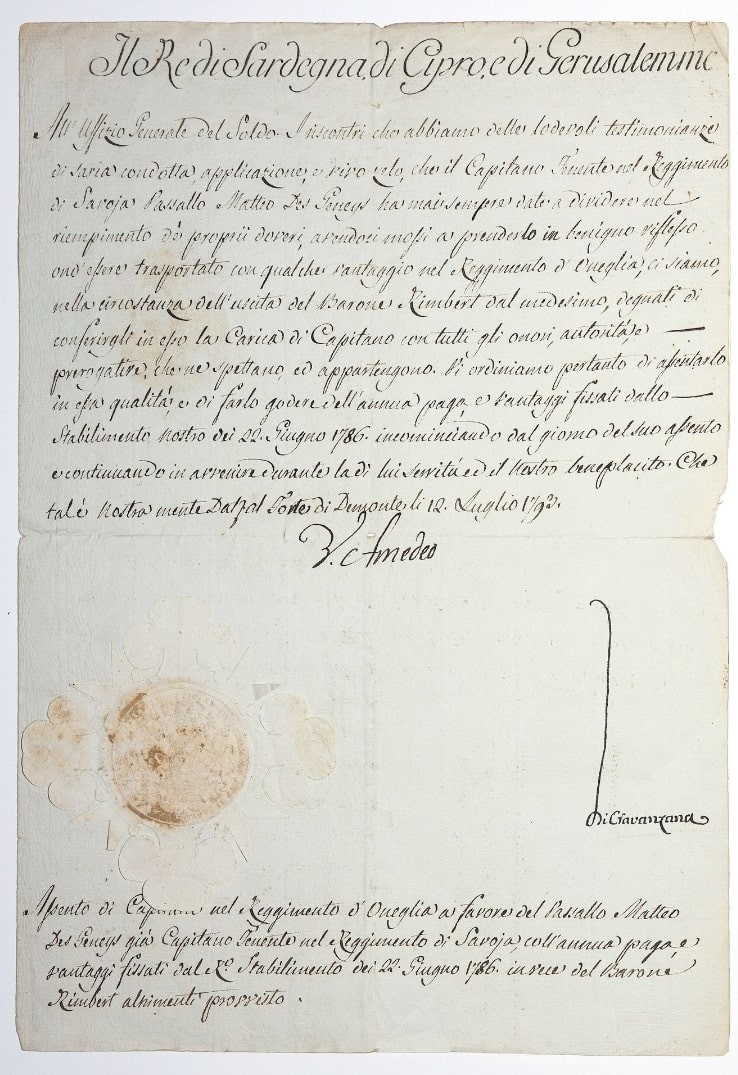 Il Re di Sardegna, di Cipro, e di Gerusalemme
All' Uffizio Generale del Soldo. I riscontri che abbiamo delle lodevoli testimonianze
di savia condotta, applicazione, e vivo zelo, che il Capitano Tenente nel Reggimento
di Savoja Vassallo Matteo Des Geneys ha mai sempre date a dividere nel
riempimento de' proprii doveri, avendoci mossi a prenderlo in benigno riflesso
ond' essere trasportato con qualche vantaggio nel Reggimento d' Oneglia, ci siamo,
nella circostanza dell' uscita del Barone Rimbert dal medesimo, degnati di
conferirgli in esso la Carica di Capitano con tutti gli onori, autorità, e —
prerogative, che ne spettano, ed appartengono. Vi ordiniamo pertanto di assentarlo
in essa qualità e di farlo godere dell' annua paga, e vantaggi fissati dallo —
Stabilimento nostro dei 22. Giugno 1786. incominciando dal giorno del suo assento
e continuando in avvenire durante la di lui servitù ed il nostro beneplacito. Che
tal è nostra mente Dat. al Forte di Demonte li 12. Luglio 1793.
V. Amedeo
Di Cravanzana
Assento di Capitano nel Reggimento d' Oneglia a favore del Vassallo Matteo
Des Geneys già Capitano Tenente nel Reggimento di Savoja, coll' annua paga, e
vantaggi fissati dal R.º Stabilimento dei 22. Giugno 1786. in vece del Barone
Rimbert altrimenti provvisto.